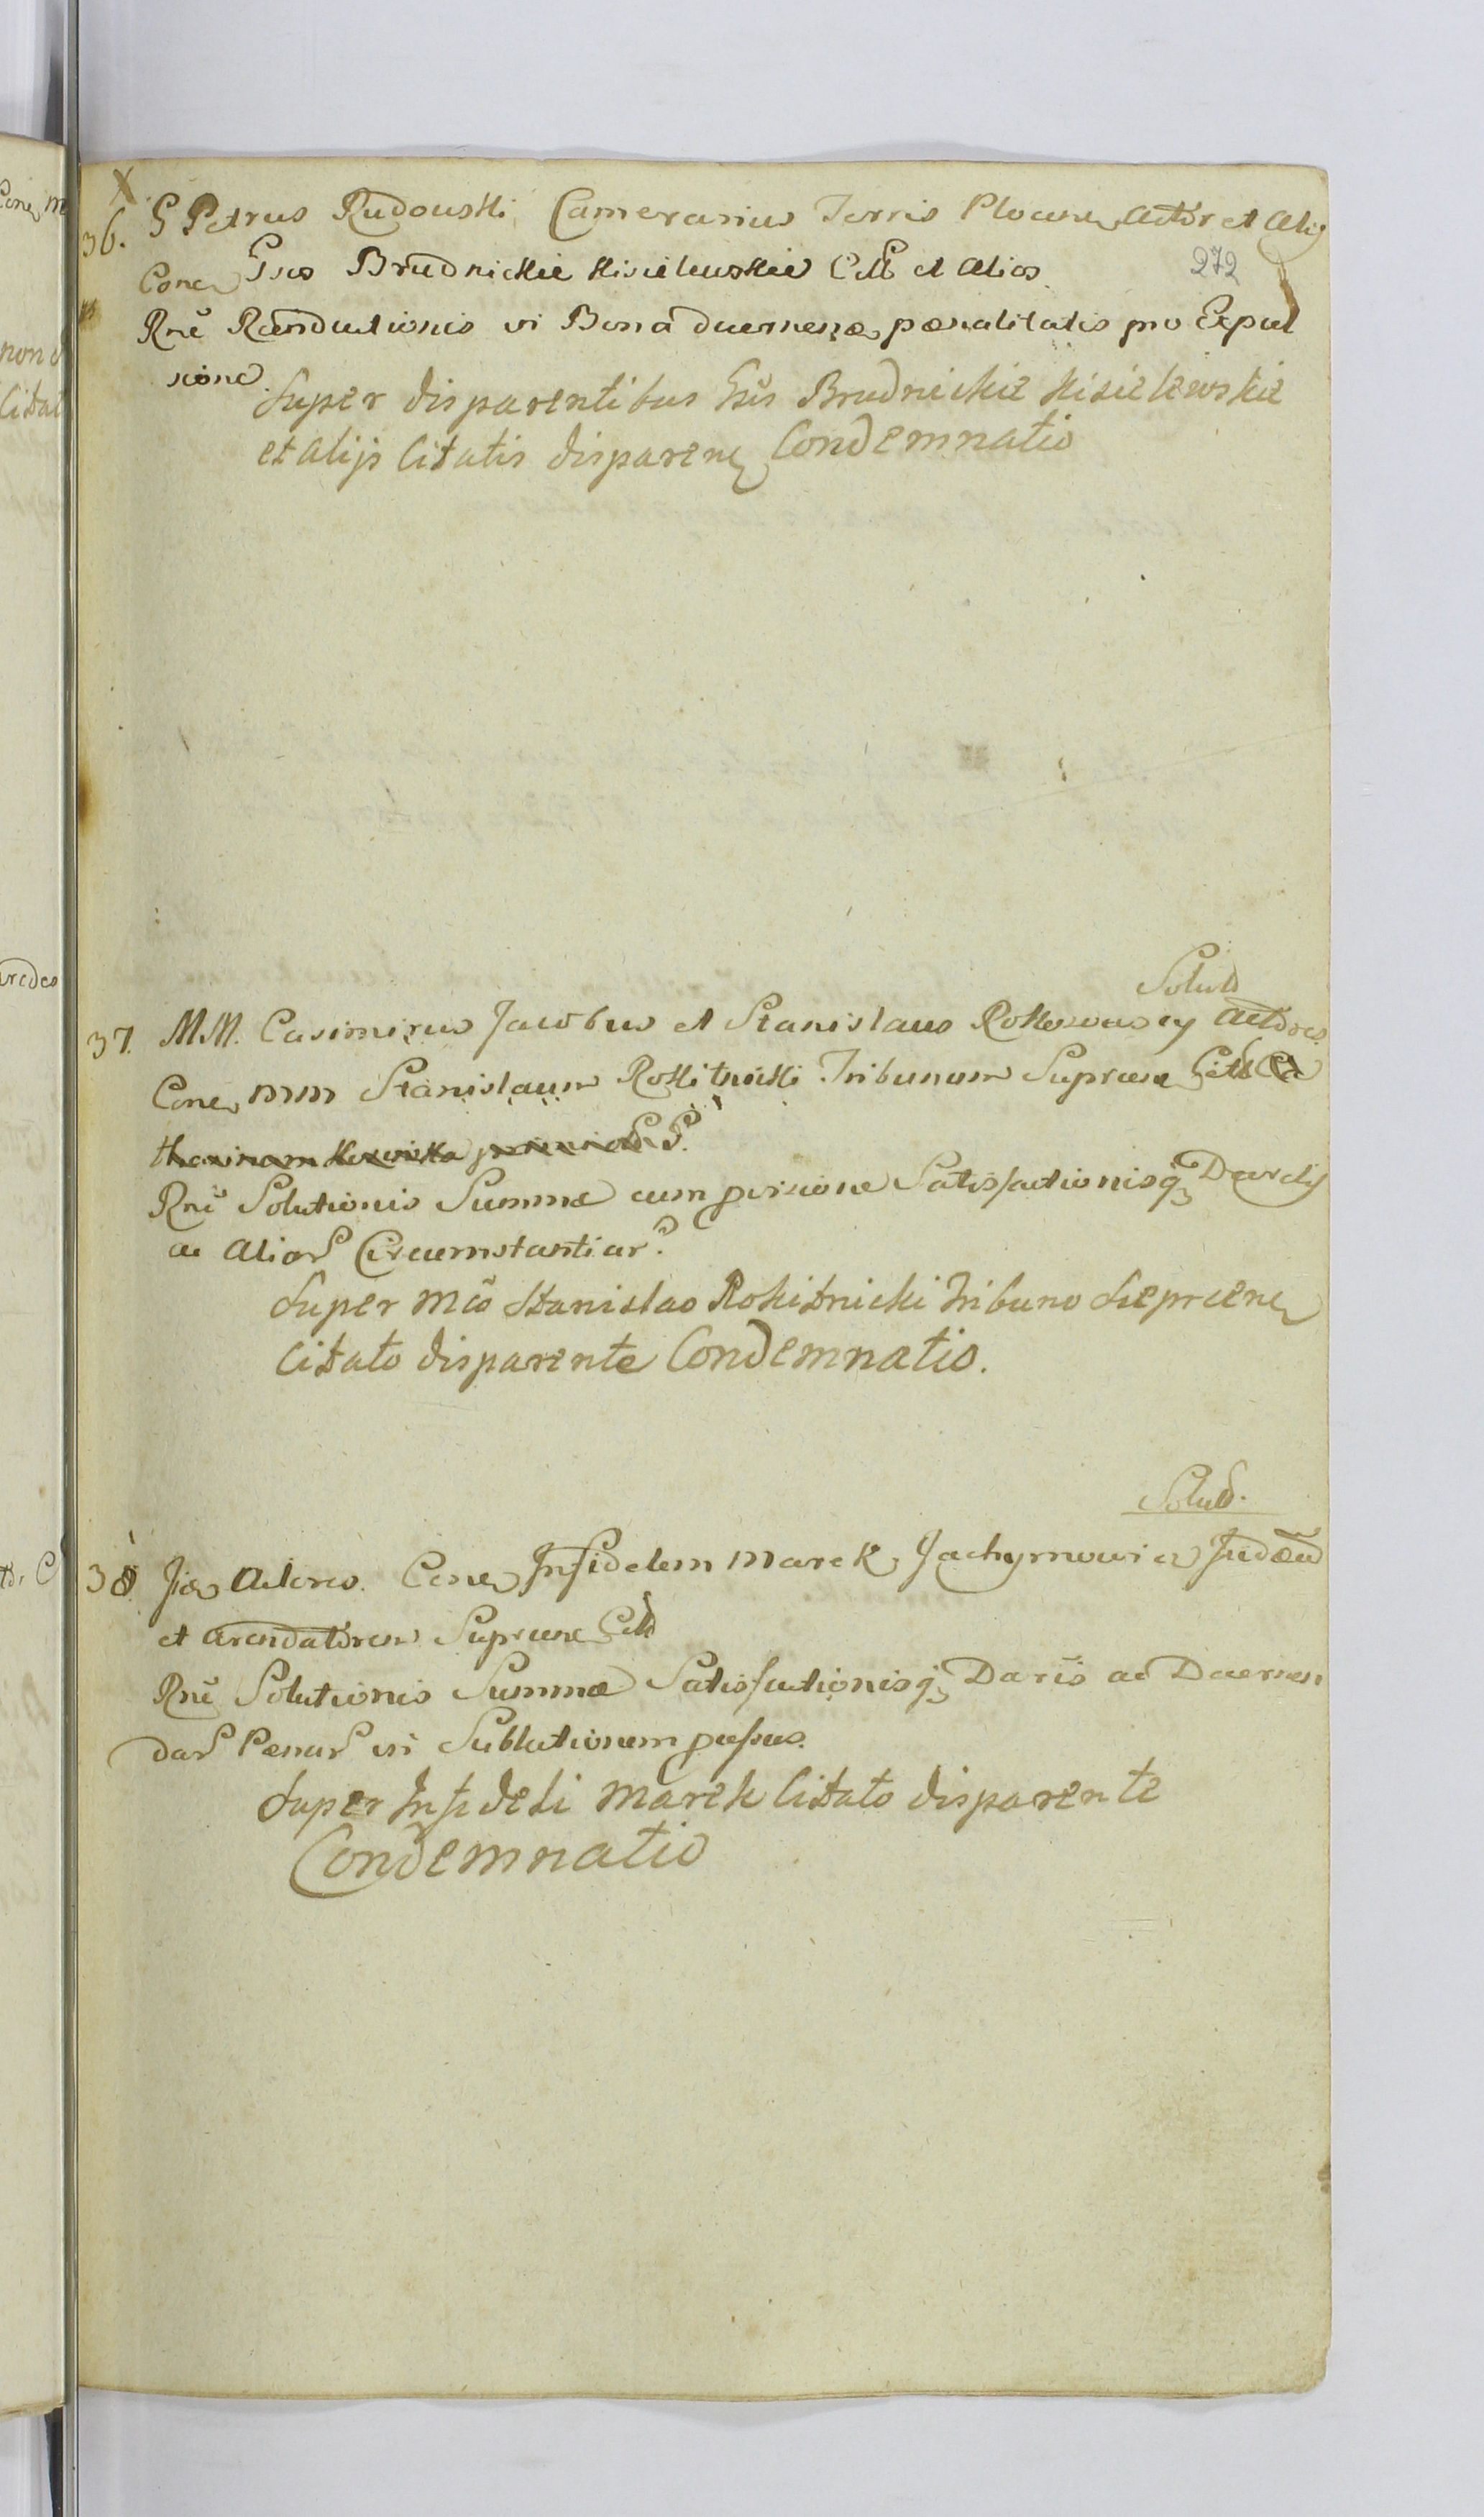 X
36. G Petrus Rudouski Camerarius Terris Plocen Actor et Alij
272
Conc Gsos Brudnickie Kisielewskie Citt et Alios
Rne Conductionis vi Bona pœnalitatis pro Expul
sione.
Super disparentibus Gsis Brudnickie Kisielewskie
et Alijs Citatis disparen Condemnatio
Solvit
37. MM. Casimirus Jacobus et Stanislaus Actores
Conc MM Stanislaum Rokitnicki Tribunum Sieprcen Citt
Rne Solutionis Summæ cum provisione Satisfactionisq
ac Aliar Circumstantiar.
Super Mco Stanislao Rokitnicki Tribuno Sieprcen
Citato disparente Condemnatio.
Solvit.
38. Actores. Conc Infidelem Marek Jachymowicz Judæu
et Arendatorem Sieprcen Citt
Rne Solutionis Summæ Satisfactionisq Daris ac Decernen
dar Pœnar
Super Infideli Marek Citato disparente
Condemnatio